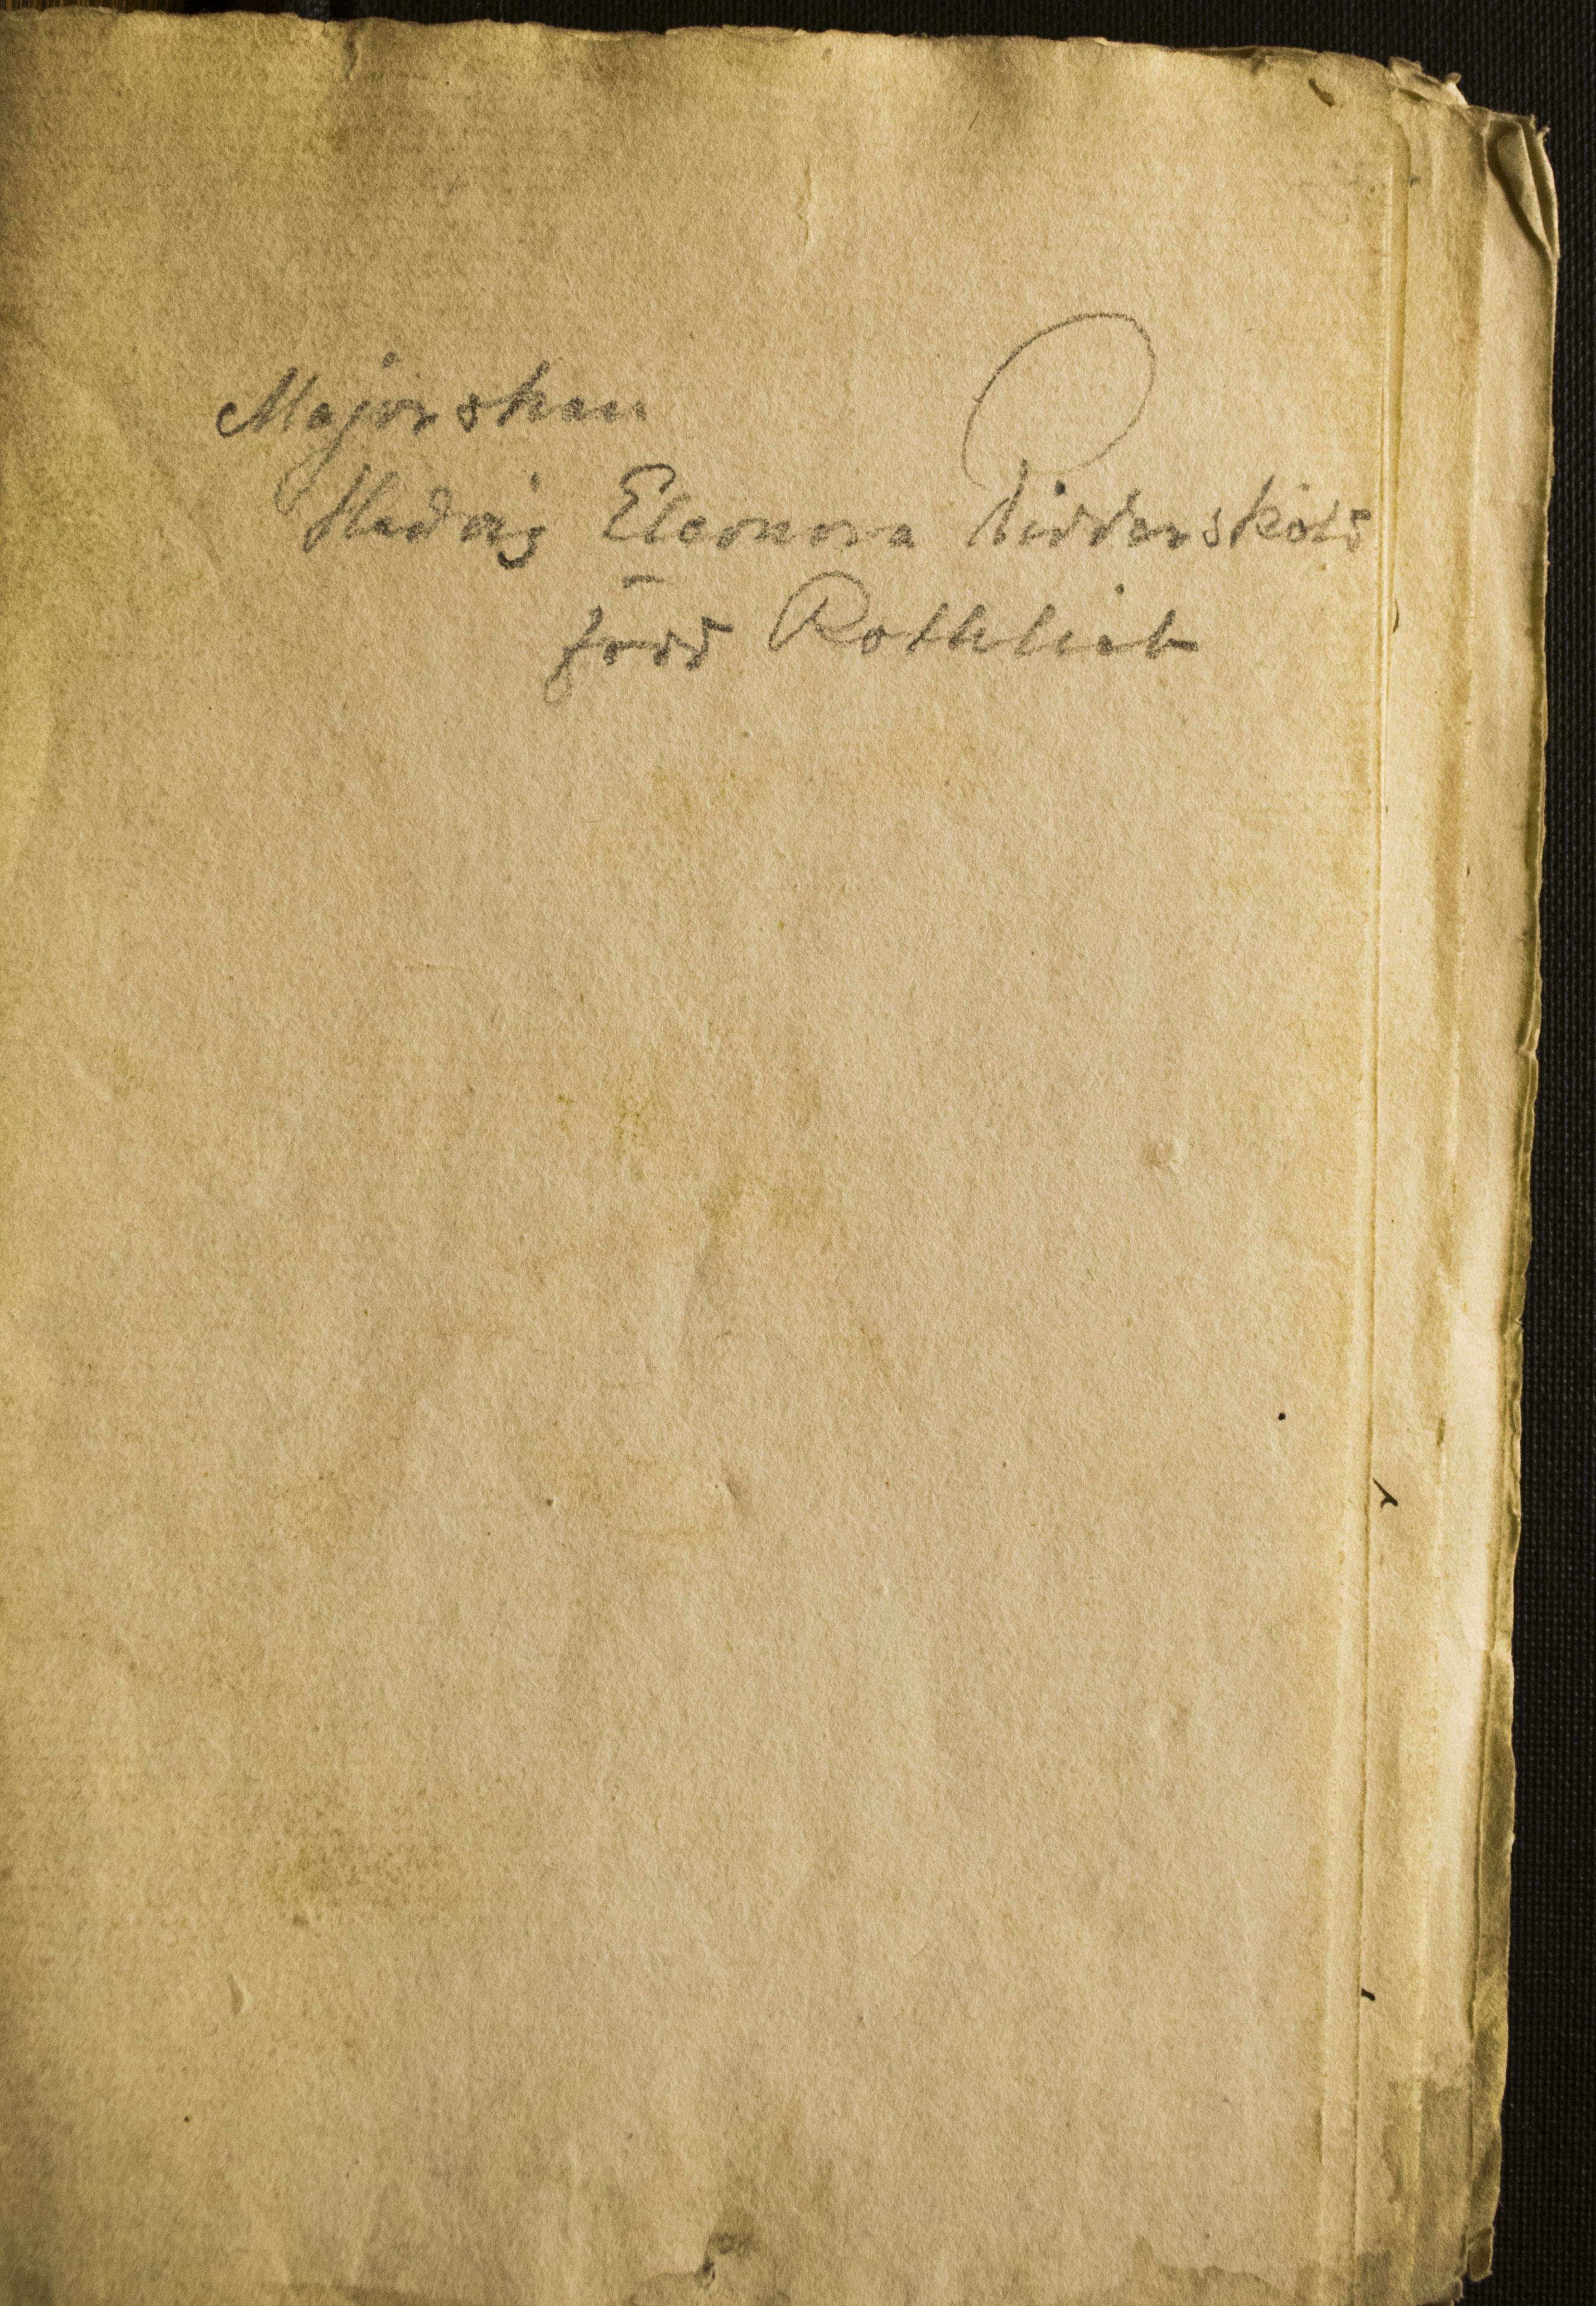 Majorskan
Hedvig Eleonora Riddersköld
född Rothlieb